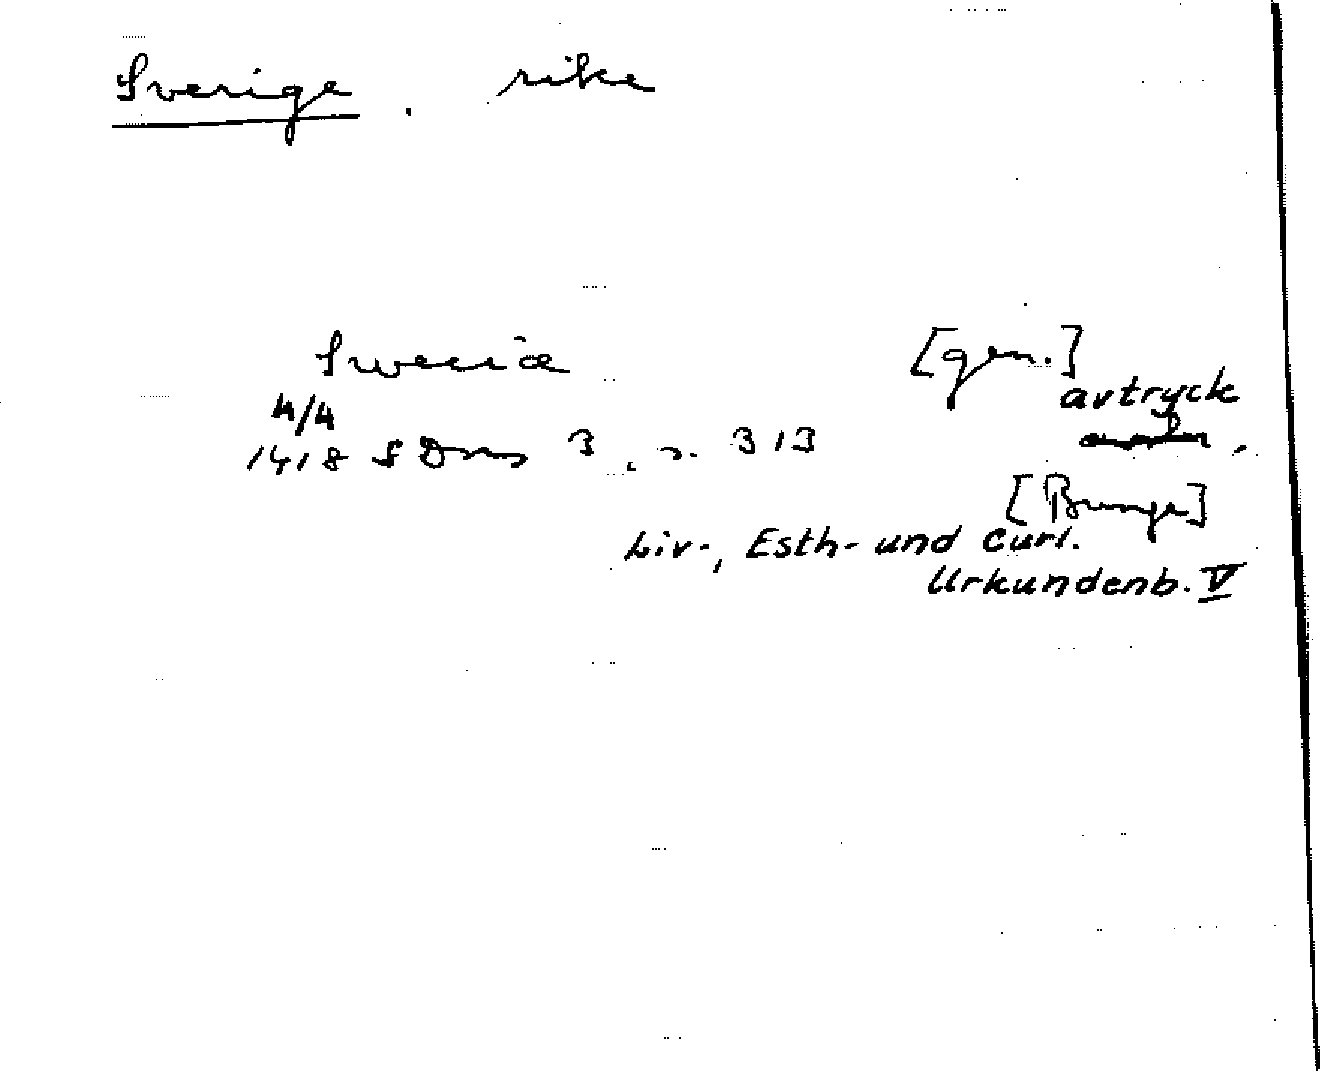 Sverige . rike
Sweciæ [gen.]
4/4 avtryck
1418 SDns 3, s. 313
[Bunge]
Liv-, Esth- und Curl.
Urkundenb. V